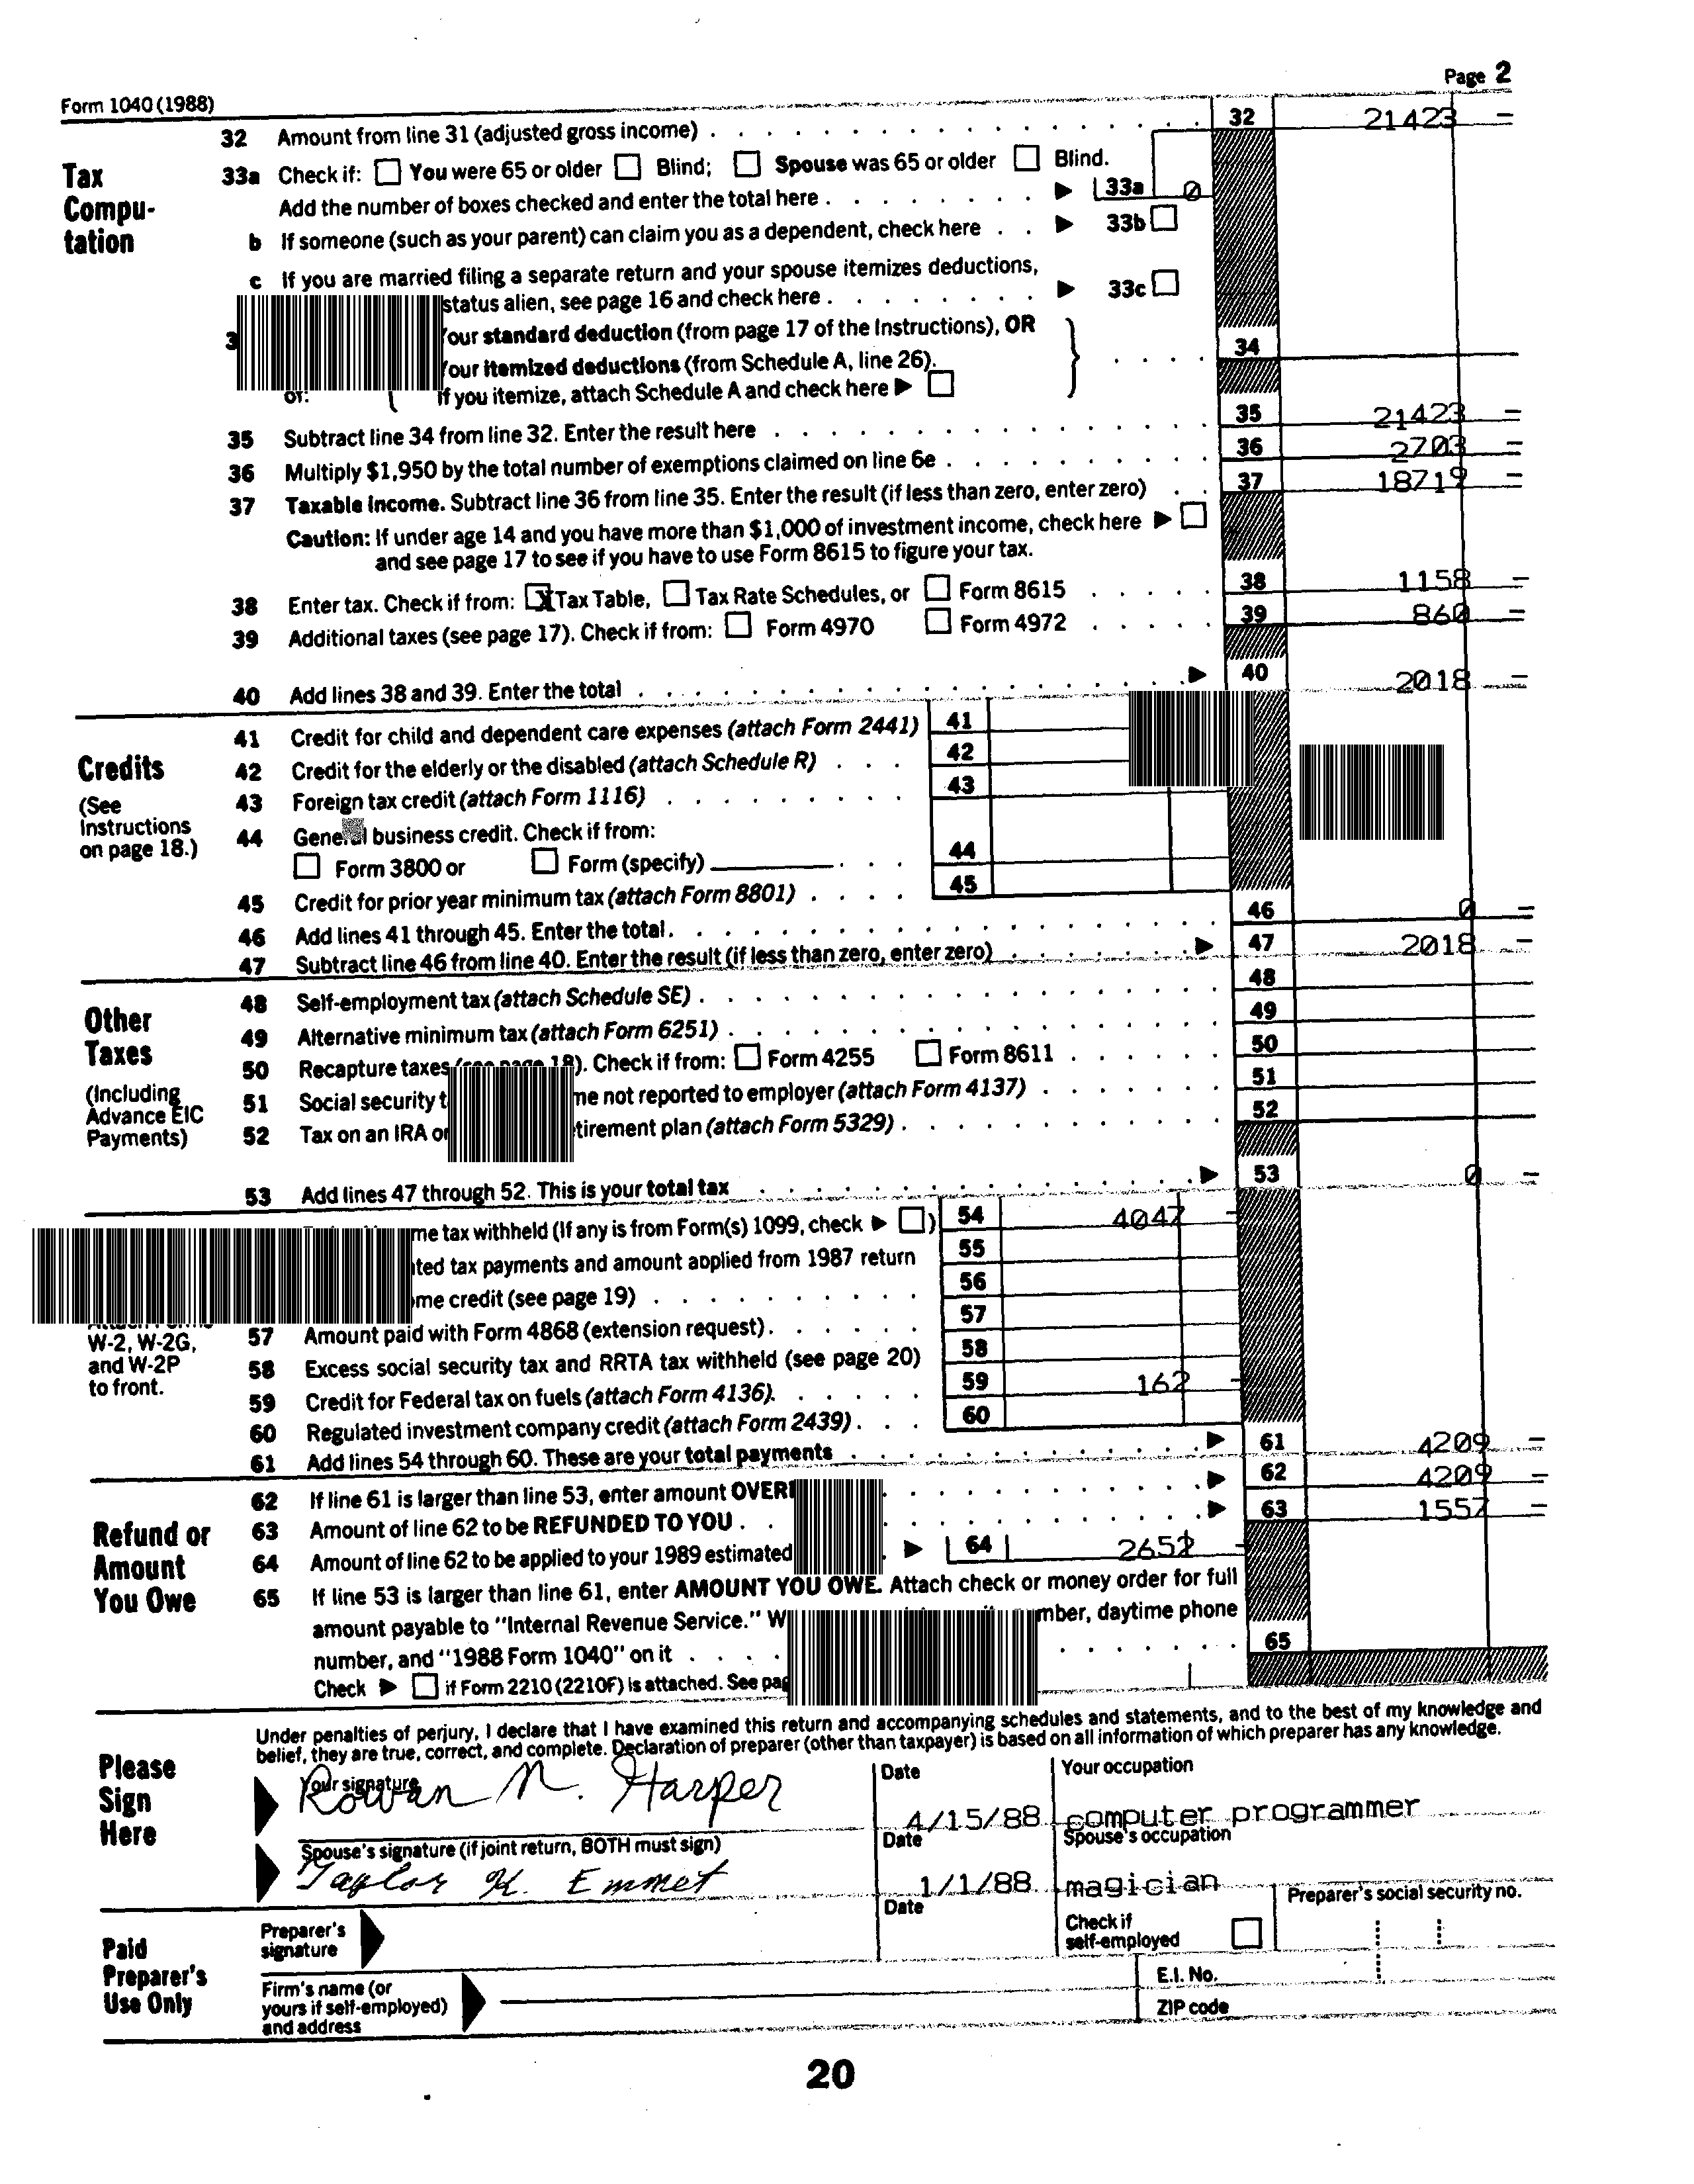 Form 1040 (1988)
Page 2
32 Amount from line 31 (adjusted gross income) 32 21423 –
Tax Compu-tation
33a Check if: You were 65 or older Blind; Spouse was 65 or older Blind.
Add the number of boxes checked and enter the total here 33a 0
b If someone (such as your parent) can claim you as a dependent, check here 33b
c If you are married filing a separate return and your spouse itemizes deductions,
status alien, see page 16 and check here 33c
our standard deduction (from page 17 of the Instructions), OR
our itemized deductions (from Schedule A, line 26). 34
If you itemize, attach Schedule A and check here
35 Subtract line 34 from line 32. Enter the result here 35 21423 –
36 Multiply $1,950 by the total number of exemptions claimed on line 6e 36 2703 –
37 Taxable income. Subtract line 36 from line 35. Enter the result (if less than zero, enter zero) 37 18719 –
Caution: If under age 14 and you have more than $1,000 of investment income, check here
and see page 17 to see if you have to use Form 8615 to figure your tax.
38 Enter tax. Check if from: X Tax Table, Tax Rate Schedules, or Form 8615 38 1158 –
39 Additional taxes (see page 17). Check if from: Form 4970 Form 4972 39 860 –
40 Add lines 38 and 39. Enter the total 40 2018 –
Credits
(See Instructions on page 18.)
41 Credit for child and dependent care expenses (attach Form 2441) 41
42 Credit for the elderly or the disabled (attach Schedule R) 42
43 Foreign tax credit (attach Form 1116) 43
44 General business credit. Check if from:
Form 3800 or Form (specify) 44
45 Credit for prior year minimum tax (attach Form 8801) 45
46 Add lines 41 through 45. Enter the total 46 0 –
47 Subtract line 46 from line 40. Enter the result (if less than zero, enter zero) 47 2018 –
Other Taxes
(Including Advance EIC Payments)
48 Self-employment tax (attach Schedule SE) 48
49 Alternative minimum tax (attach Form 6251) 49
50 Recapture taxes (see page 18). Check if from: Form 4255 Form 8611 50
51 Social security t me not reported to employer (attach Form 4137) 51
52 Tax on an IRA or tirement plan (attach Form 5329) 52
53 Add lines 47 through 52. This is your total tax 53 0 –
me tax withheld (If any is from Form(s) 1099, check ) 54 4047 –
ted tax payments and amount applied from 1987 return 55
me credit (see page 19) 56
W-2, W-2G, and W-2P to front.
57 Amount paid with Form 4868 (extension request) 57
58 Excess social security tax and RRTA tax withheld (see page 20) 58
59 Credit for Federal tax on fuels (attach Form 4136) 59 162 –
60 Regulated investment company credit (attach Form 2439) 60
61 Add lines 54 through 60. These are your total payments 61 4209 –
Refund or Amount You Owe
62 If line 61 is larger than line 53, enter amount OVER 62 4209 –
63 Amount of line 62 to be REFUNDED TO YOU 63 1557 –
64 Amount of line 62 to be applied to your 1989 estimated 64 2652 –
65 If line 53 is larger than line 61, enter AMOUNT YOU OWE. Attach check or money order for full
amount payable to "Internal Revenue Service." W mber, daytime phone
number, and "1988 Form 1040" on it 65
Check if Form 2210 (2210F) is attached. See pag
Please Sign Here
Under penalties of perjury, I declare that I have examined this return and accompanying schedules and statements, and to the best of my knowledge and
belief, they are true, correct, and complete. Declaration of preparer (other than taxpayer) is based on all information of which preparer has any knowledge.
Your signature Date Your occupation
Rowan N. Harper 4/15/88 computer programmer
Spouse's signature (if joint return, BOTH must sign) Date Spouse's occupation
Taylor H. Emmet 1/1/88 magician
Paid Preparer's Use Only
Preparer's signature Date Check if self-employed Preparer's social security no.
Firm's name (or yours if self-employed) and address E.I. No.
ZIP code
20